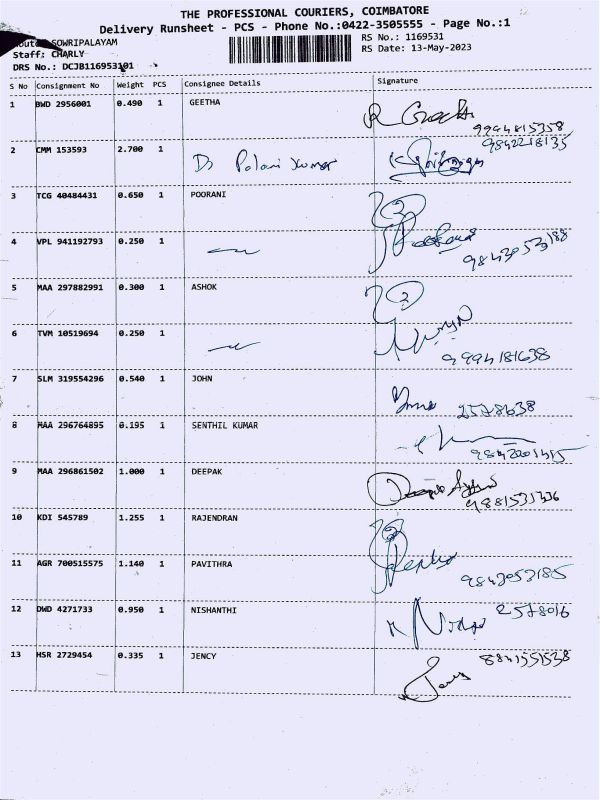 THE PROFESSIONAL COURIERS, COIMBATORE
Delivery Runsheet - PCS - Phone No.:0422-3505555 - Page No.:1
SOWRIPALAYAM RS No.: 1169531
Staff: CHARLY RS Date: 13-May-2023
DRS No.: DCJB116953101
S No Consignment No Weight PCS Consignee Details Signature
1 BWD 2956001 0.490 1 GEETHA
9994815358
2 CMM 153593 2.700 1 Dr Palani Kumar 9842218135
3 TCG 40484431 0.650 1 POORANI
4 VPL 941192793 0.250 1
5 MAA 297882991 0.300 1 ASHOK
6 TVM 10519694 0.250 1
9994181638
7 SLM 319554296 0.540 1 JOHN
2578638
8 MAA 296764895 0.195 1 SENTHIL KUMAR
9 MAA 296861502 1.000 1 DEEPAK
10 KDI 545789 1.255 1 RAJENDRAN
11 AGR 700515575 1.140 1 PAVITHRA
12 DWD 4271733 0.950 1 NISHANTHI 2578016
13 HSR 2729454 0.335 1 JENCY
Jency